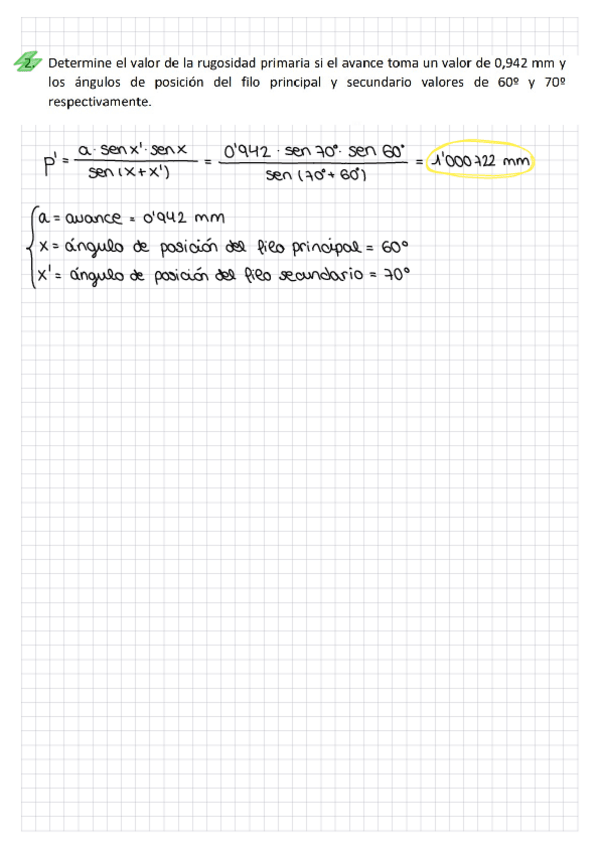 2. Determine el valor de la rugosidad primaria si el avance toma un valor de 0,942 mm y
los ángulos de posición del filo principal y secundario valores de 60º y 70º
respectivamente.
p' = a · sen x' · sen x / sen (x + x') = 0'942 · sen 70° · sen 60° / sen (70° + 60°) = 1'000722 mm
a = avance = 0'942 mm
x = ángulo de posición del filo principal = 60°
x' = ángulo de posición del filo secundario = 70°